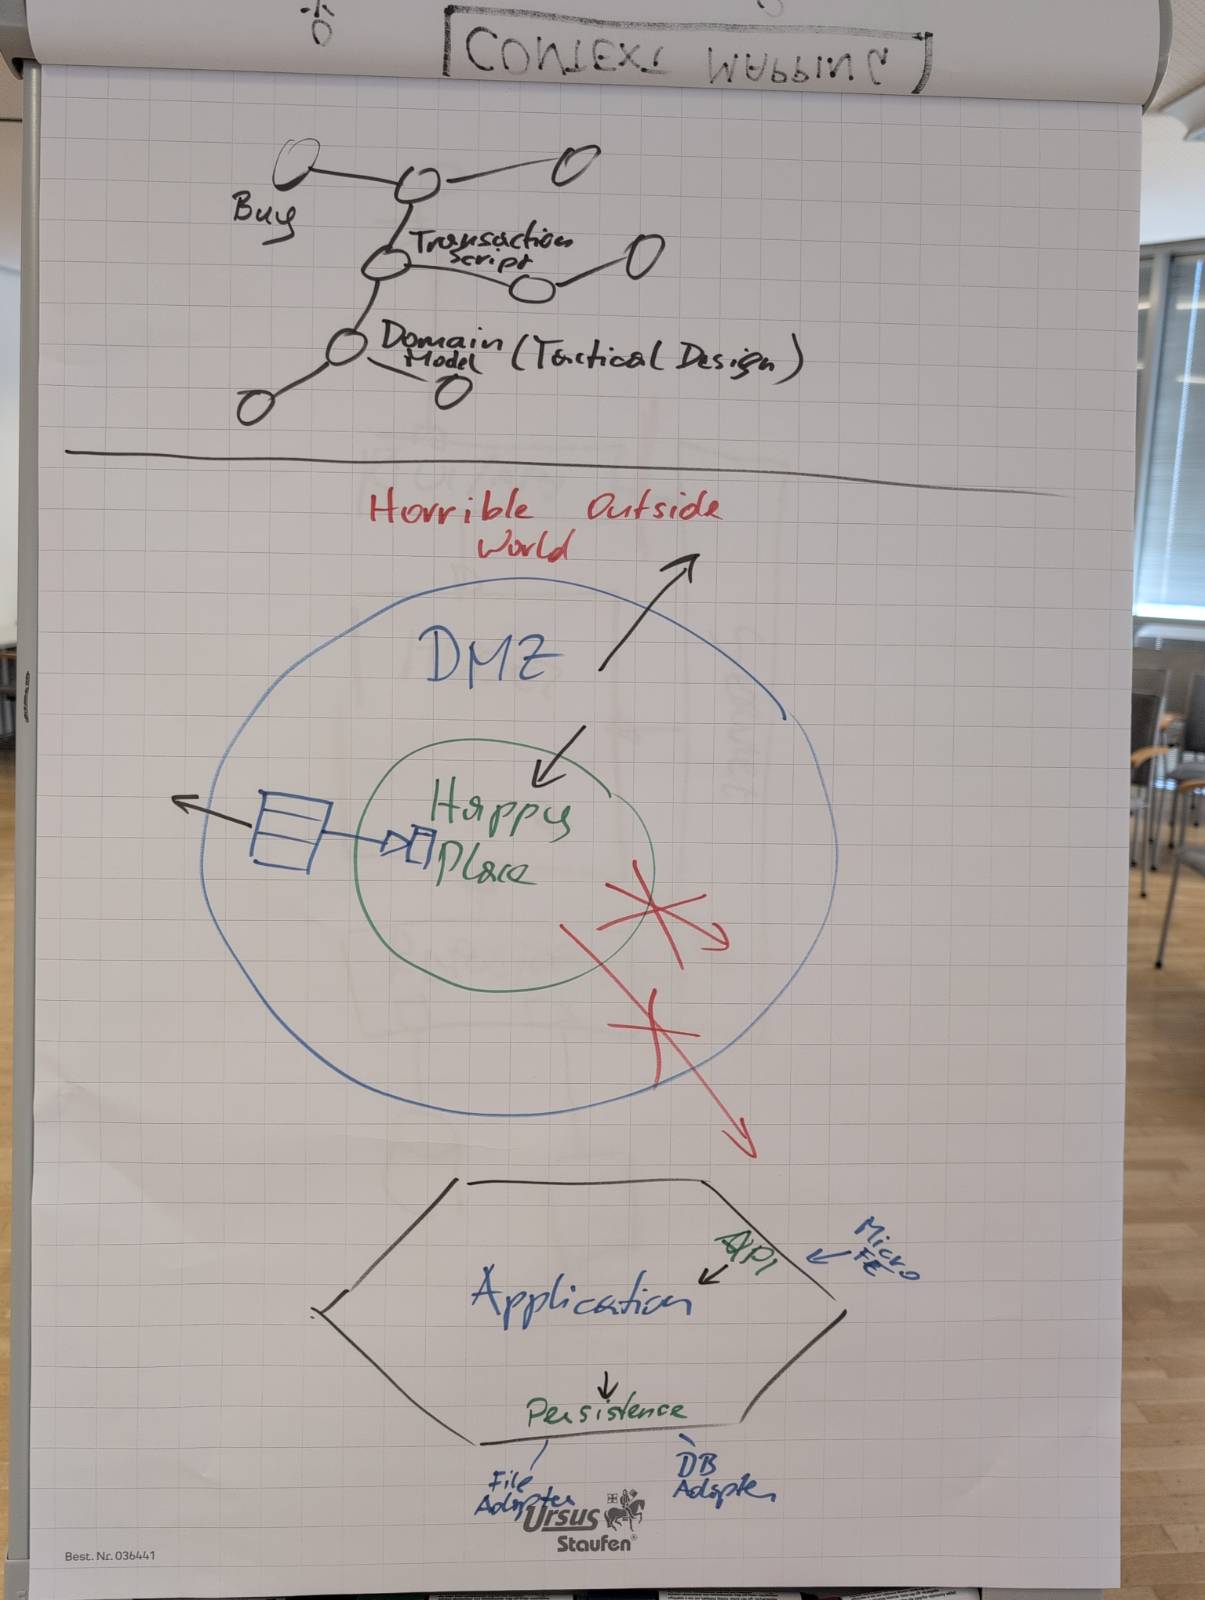 CONTEXT MAPPING
Buy
Transaction
Script
Domain
Model
(Tactical Design)
Horrible Outside
World
DMZ
Happy
Place
API
Micro
FE
Application
Persistence
File
Adapter
DB
Adapter
Ursus
Staufen
Best. Nr. 036441